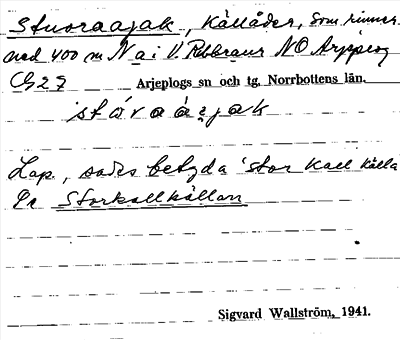 Stuoraajak, Källåder, som rinner
ned 400 m N a i V. Rebraur NO Arjeplog
Ch27 Arjeplogs sn och tg. Norrbottens län.
stáraájak
Lap., sades betyda 'stor kall källa
Pr Storkallkällan
Sigvard Wallström, 1941.